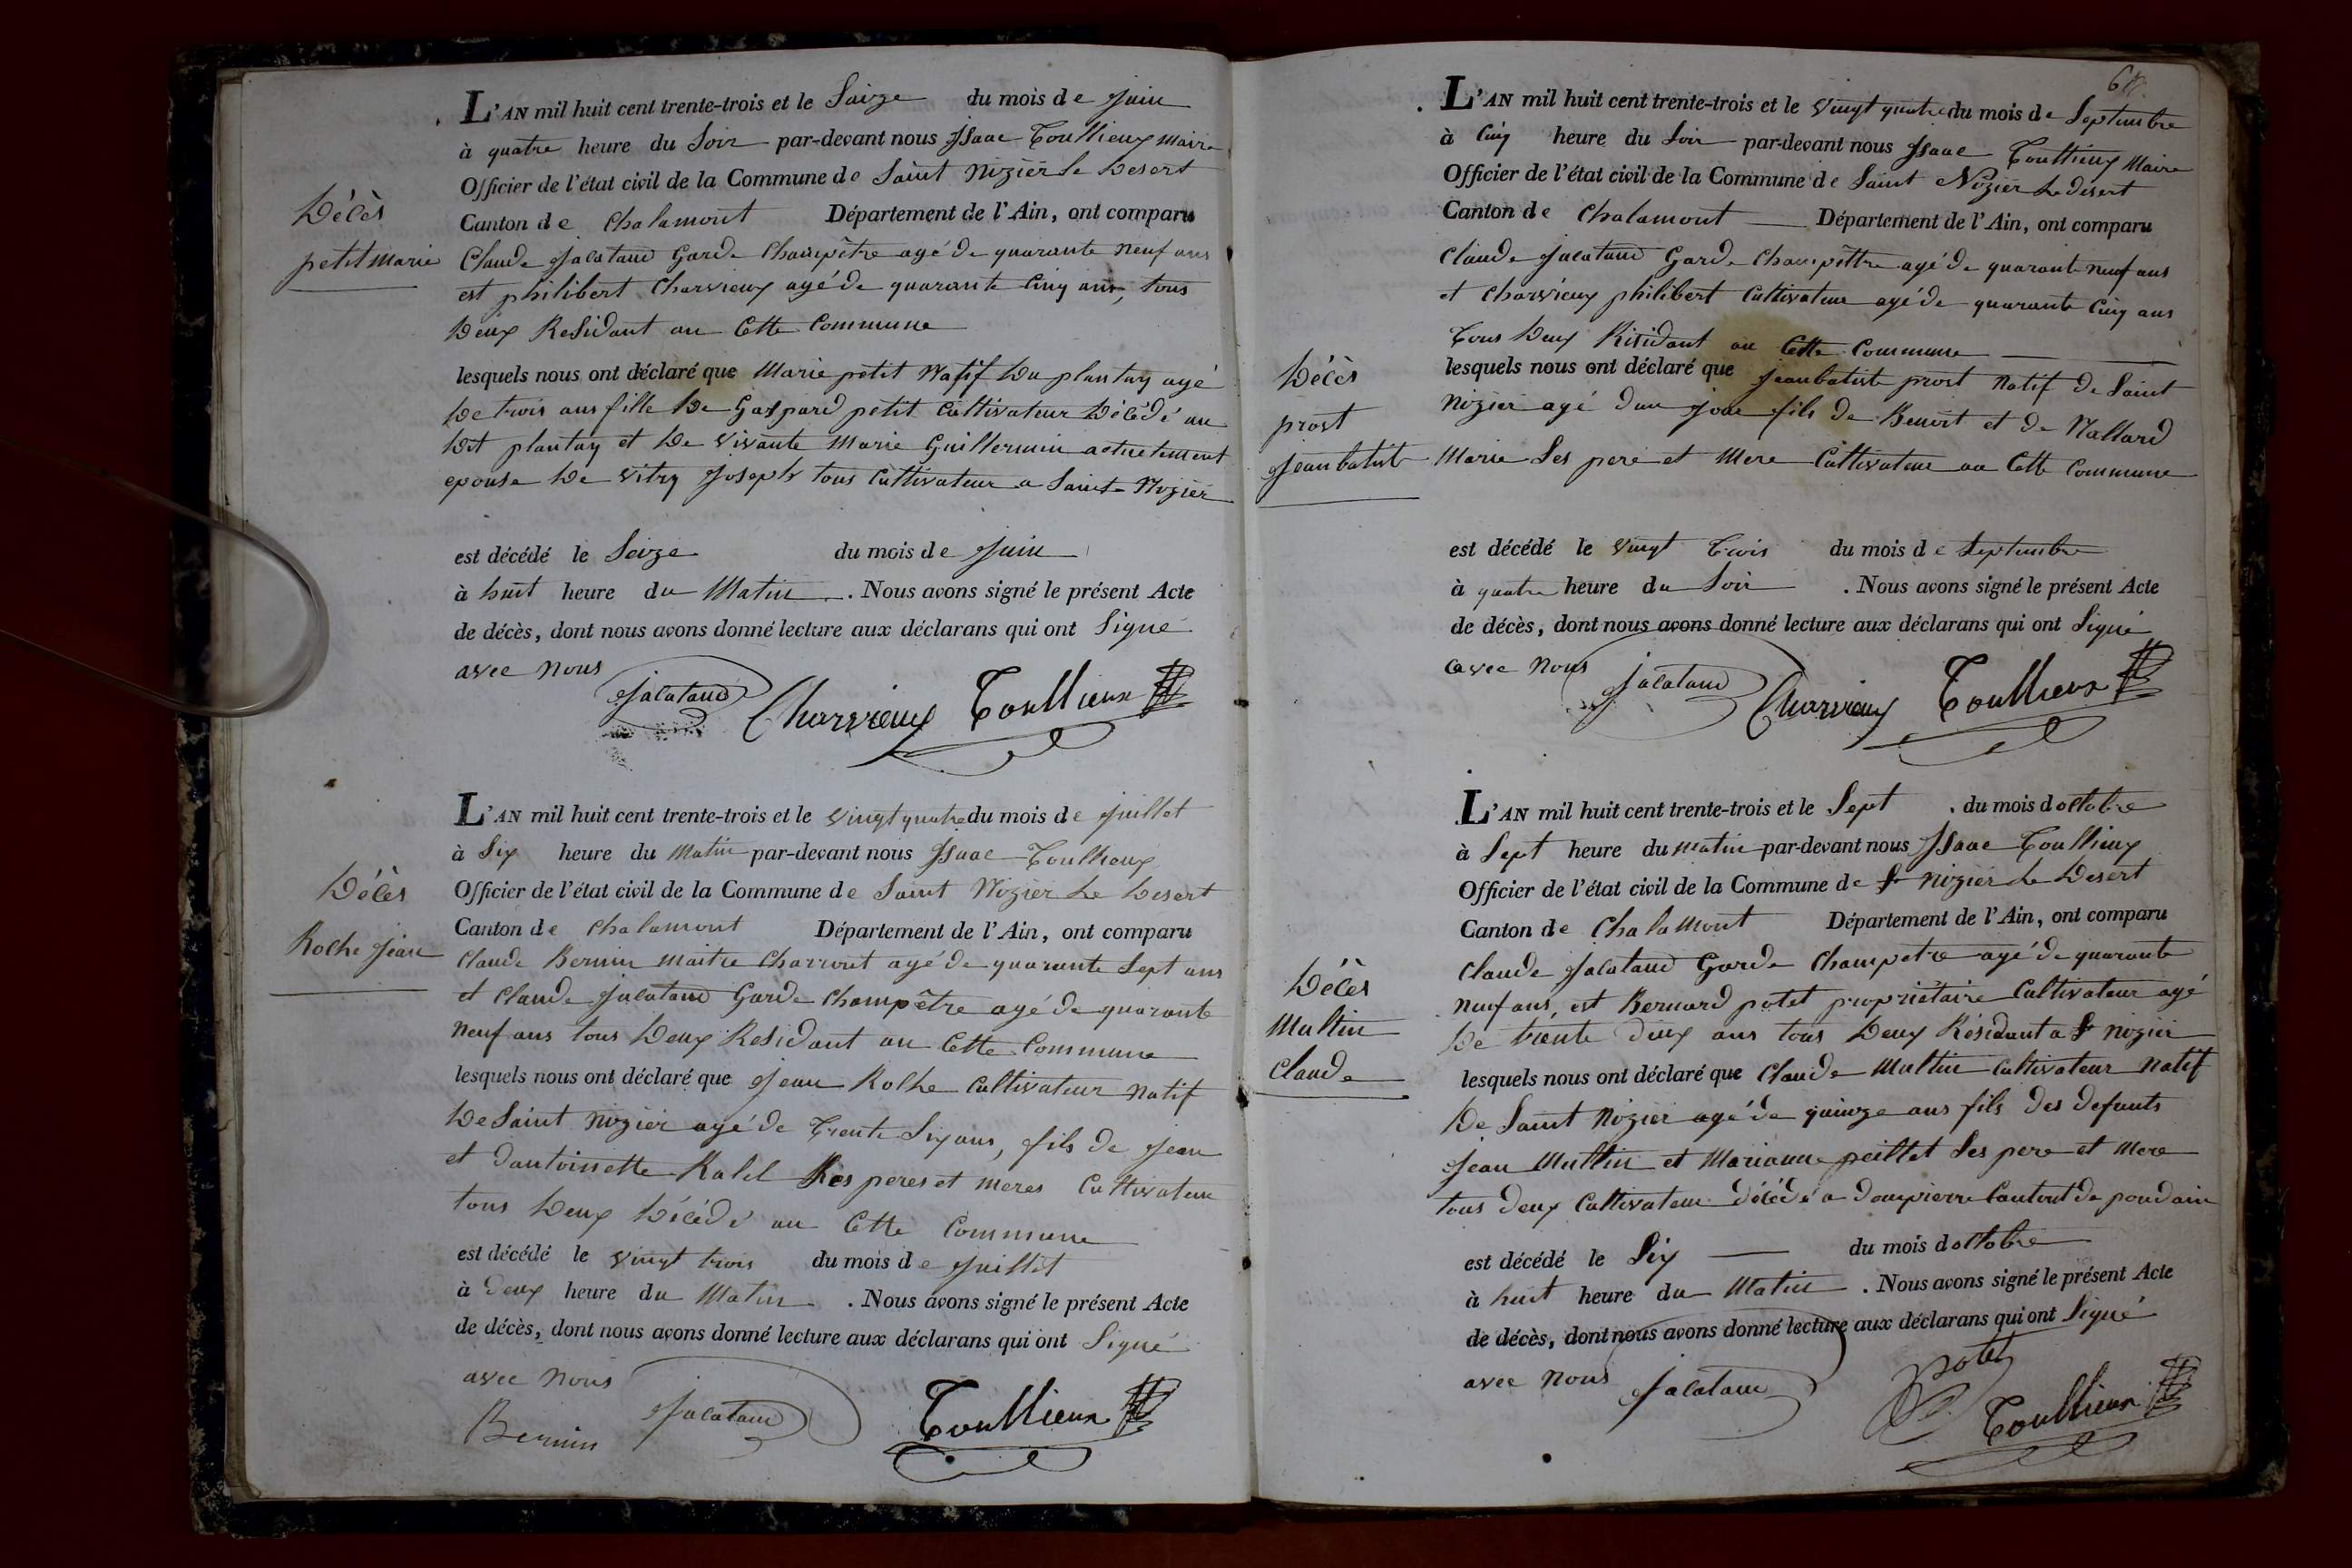 L'AN mil huit cent trente-trois et le Saize du mois de Juin
à quatre heure du Soir par-devant nous Isaac Toullieux Maire
Officier de l'état civil de la Commune de Saint Nizier le Desert
Canton de Chalamont Département de l'Ain, ont comparu
Claude Jalataud Garde Champêtre agé de quarante neuf ans
est philibert Charvieux agé de quarante Cinq ans, tous
Deux Residant an Cette Commune
Décès
petit Marie
lesquels nous ont déclaré que Marie petit Natif Du plantay agé
De trois ans fille De Gaspard petit Cultivateur Décédé au
Dit plantay et De vivante Marie Guillermin actuelement
epouse De Vitry Joseph tous Cultivateur a Saint Nizier
est décédé le Seize du mois de Juin
à huit heure du Matin . Nous avons signé le présent Acte
de décès, dont nous avons donné lecture aux déclarans qui ont Signé
avec nous
Jalataud Charvieux Toullieux
L'AN mil huit cent trente-trois et le vingt quatre du mois de Juillet
à Six heure du Matin par-devant nous Isaac Toullieux
Officier de l'état civil de la Commune de Saint Nizier Le Desert
Canton de Chalamont Département de l'Ain, ont comparu
Claude Bernin maitre Charront agé de quarante Sept ans
et Claude Jalataud Garde Champêtre agé de quarante
neuf ans tous Deux Residant an Cette Commune
Décès
Rolhe Jean
lesquels nous ont déclaré que Jean Rolhe Cultivateur Natif
De Saint Nizier agé de Trente Six ans, fils de Jean
et dantoinette Ses peres et meres Cultivateur
tous Deux Décédé an Cette Commune
est décédé le vingt trois du mois de Juillet
à Deux heure du Matin . Nous avons signé le présent Acte
de décès, dont nous avons donné lecture aux déclarans qui ont Signé
avec nous
Bernin Jalataud Toullieux
L'AN mil huit cent trente-trois et le vingt quatre du mois de Septembre
à Cinq heure du Soir par-devant nous Isaac Toullieux Maire
Officier de l'état civil de la Commune de Saint Nizier Le desert
Canton de Chalamont Département de l'Ain, ont comparu
Claude Jalataud Garde Champêttre agé de quarante neuf ans
et Charvieux philibert Cultivateur agé de quarante Cinq ans
Tous Deux Risidant an Cette Commune
Décès
prost
Jean batist
lesquels nous ont déclaré que Jean batiste prost Natif de Saint
Nizier agé dun Jour fils de Benoit et de Nallard
Marie Ses pere et Mere Cultivateur an Cette Commune
est décédé le vingt Trois du mois de Septembre
à quatre heure du Soir . Nous avons signé le présent Acte
de décès, dont nous avons donné lecture aux déclarans qui ont Signé
avec nous
Jalataud Charvieux Toullieux
L'AN mil huit cent trente-trois et le Sept du mois doctobre
à Sept heure du matin par-devant nous Isaac Toullieux
Officier de l'état civil de la Commune de St Nizier Le Desert
Canton de Chalamont Département de l'Ain, ont comparu
Claude Jalataud Garde Champetre agé de quarante
neuf ans, est Bernard potet propriétaire Cultivateur agé
De trente deux ans tous Deux Résidant a St Nizier
Décès
Multin
Claude
lesquels nous ont déclaré que Claude Multin Cultivateur Natif
De Saint Nizier agé de quinze ans fils des defunts
Jean Multin et Marianne peillet Ses pere et Mere
tous deux Cultivateur décédé a dompierre Cantont de pondain
est décédé le Six du mois doctobre
à huit heure du Matin . Nous avons signé le présent Acte
de décès, dont nous avons donné lecture aux déclarans qui ont Signé
avec nous
Jalataud potet
Toullieux